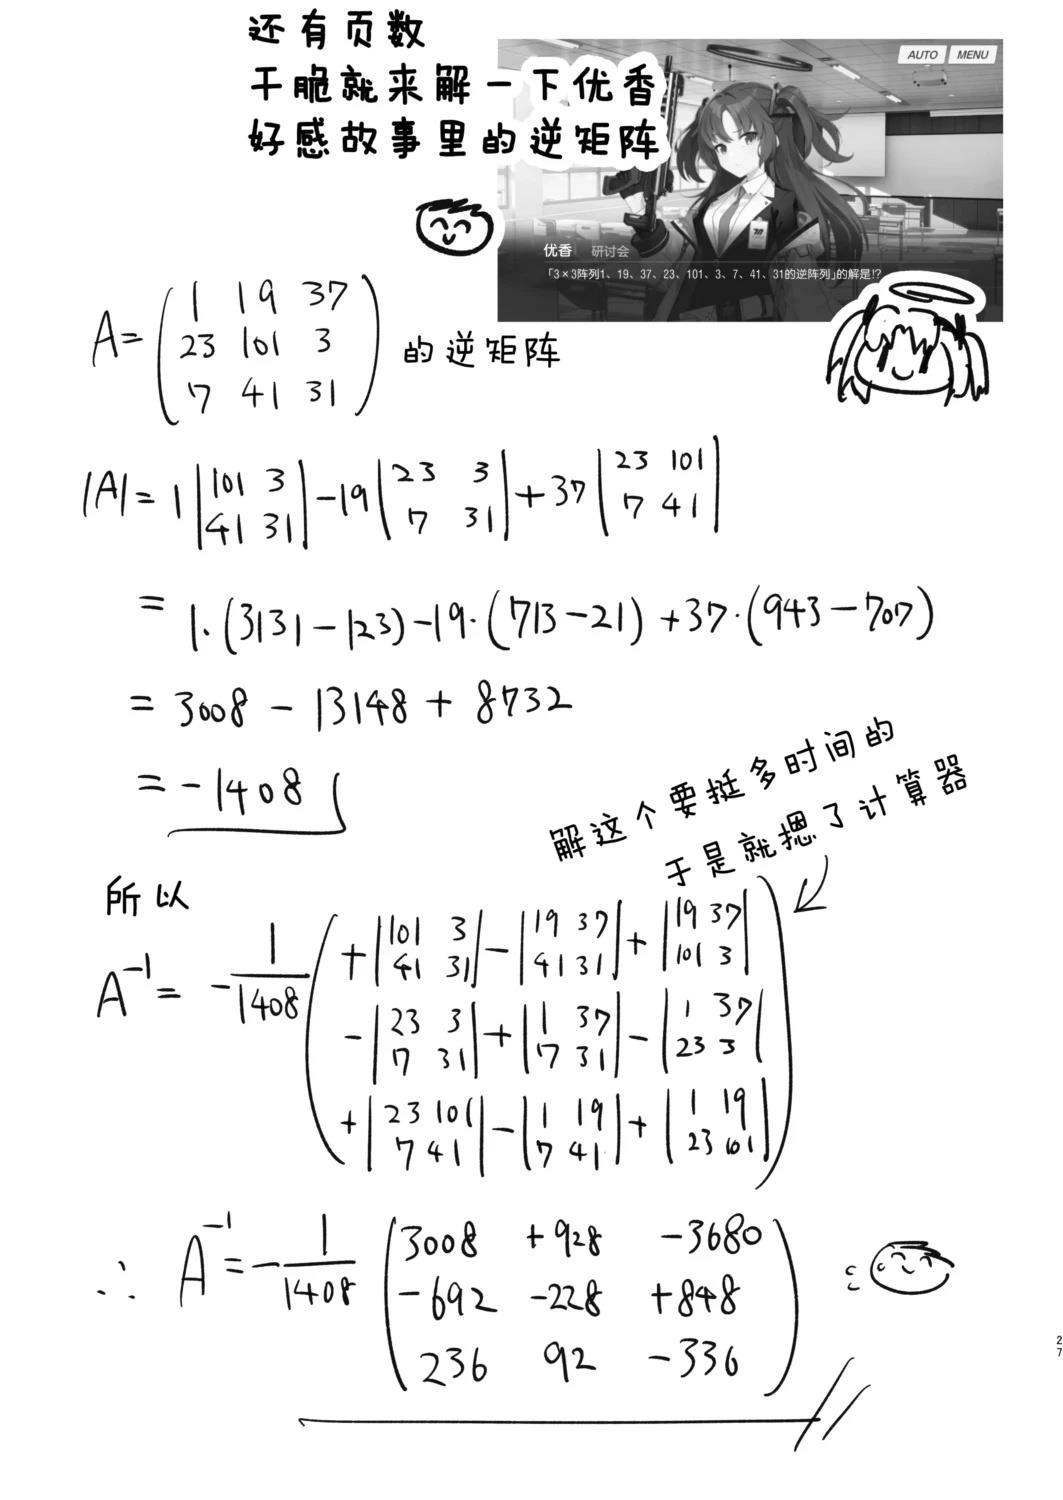 还有页数
干脆就来解一下优香
好感故事里的逆矩阵
AUTO MENU
优香 研讨会
「3×3阵列1、19、37、23、101、3、7、41、31的逆阵列」的解是!?
A= ( 1 19 37
23 101 3
7 41 31 ) 的逆矩阵
|A|= 1 |101 3 41 31| -19 |23 3 7 31| +37 |23 101 7 41|
= 1·(3131-123)-19·(713-21)+37·(943-707)
= 3008 - 13148 + 8732
= -1408
解这个要挺多时间的
于是就摁了计算器
所以
A⁻¹= -1/1408 ( +|101 3 41 31| -|19 37 41 31| +|19 37 101 3|
-|23 3 7 31| +|1 37 7 31| -|1 37 23 3|
+|23 101 7 41| -|1 19 7 41| +|1 19 23 101| )
∴ A⁻¹= -1/1408 ( 3008 +928 -3680
-692 -228 +848
236 92 -336 )
27